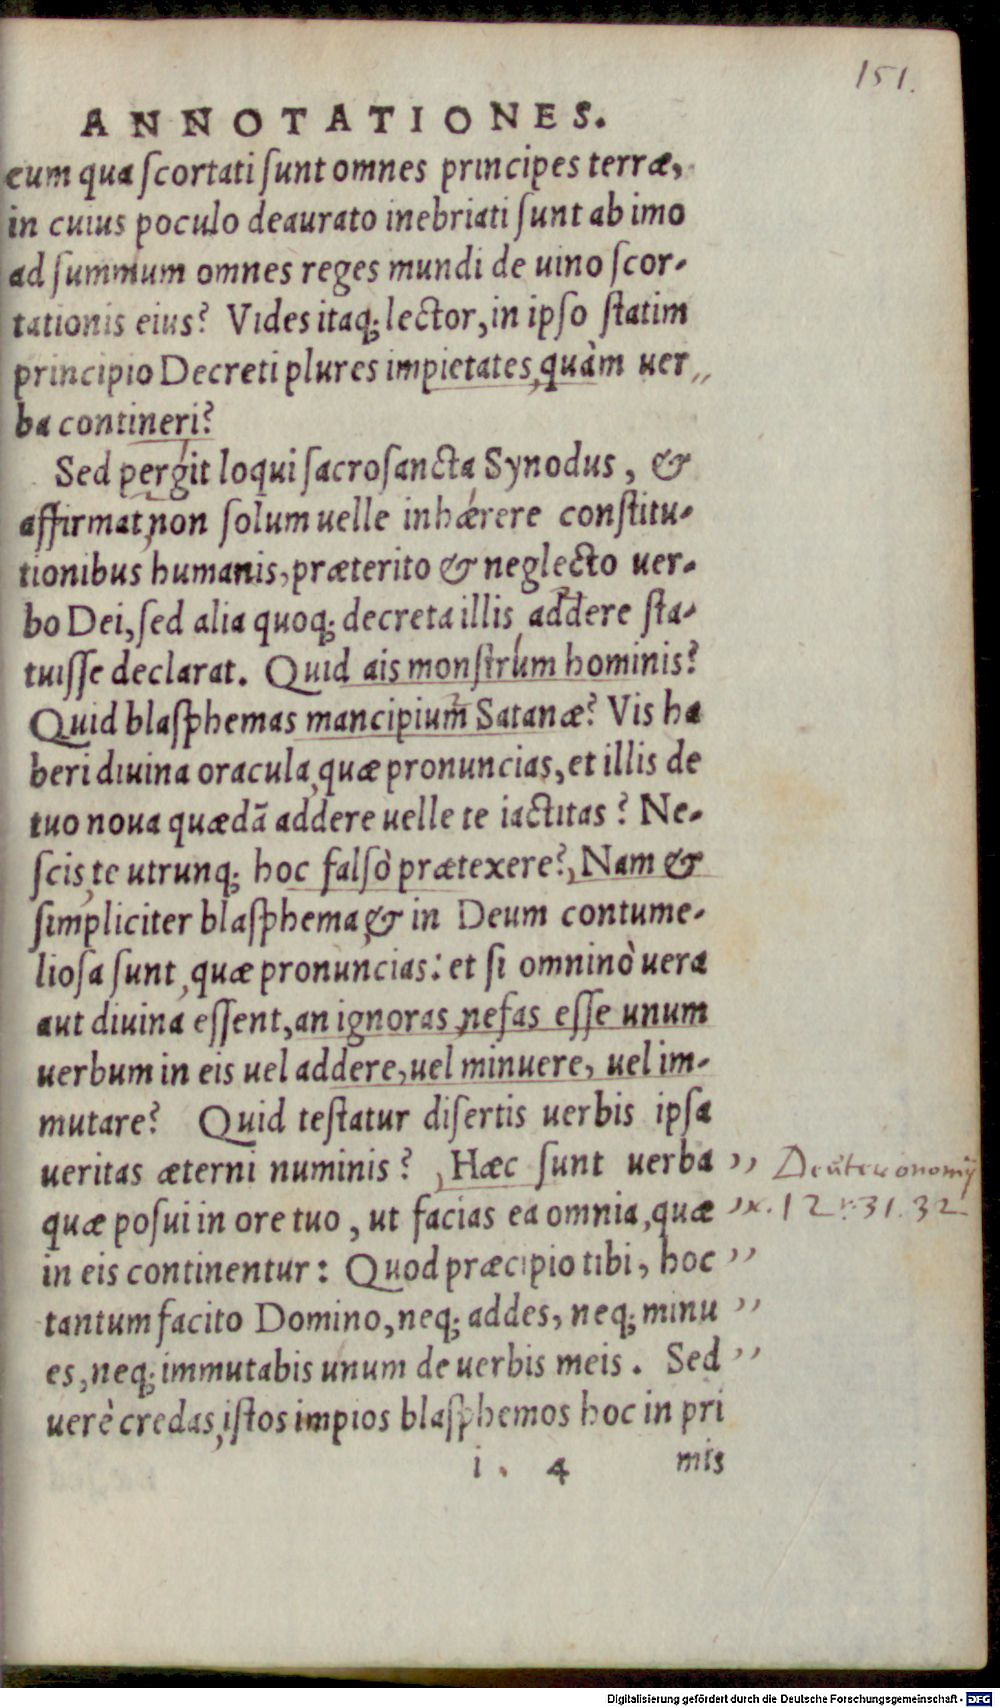 151.
ANNOTATIONES.
cum qua ſcortati ſunt omnes principes terræ,
in cuius poculo deaurato inebriati ſunt ab imo
ad ſummum omnes reges mundi de uino ſcor-
tationis eius? Vides itaq; lector, in ipſo ſtatim
principio Decreti plures impietates, quàm uer
ba contineri?
Sed pergit loqui ſacroſancta Synodus, &
affirmat, non ſolum uelle inhærere conſtitu-
tionibus humanis, præterito & neglecto uer-
bo Dei, ſed alia quoq; decreta illis addere ſta-
tuiſſe declarat. Quid ais monſtrum hominis?
Quid blaſphemas mancipium Satanæ? Vis ha
beri diuina oracula, quæ pronuncias, et illis de
tuo noua quædã addere uelle te iactitas? Ne-
ſcis, te utrunq; hoc falſò prætexere? Nam &
ſimpliciter blaſphema, & in Deum contume-
lioſa ſunt, quæ pronuncias: et ſi omninò uera
aut diuina eſſent, an ignoras nefas eſſe unum
uerbum in eis uel addere, uel minuere, uel im-
mutare? Quid teſtatur diſertis uerbis ipſa
ueritas æterni numinis? Hæc ſunt uerba ,,
Deuteronomij
quæ poſui in ore tuo, ut facias ea omnia, quæ ,,
12 31. 32
in eis continentur: Quod præcipio tibi, hoc ,,
tantum facito Domino, neq; addes, neq; minu ,,
es, neq; immutabis unum de uerbis meis. Sed ,,
uerè credas, iſtos impios blaſphemos hoc in pri
i. 4 mis
Digitalisierung gefördert durch die Deutsche Forschungsgemeinschaft - DFG